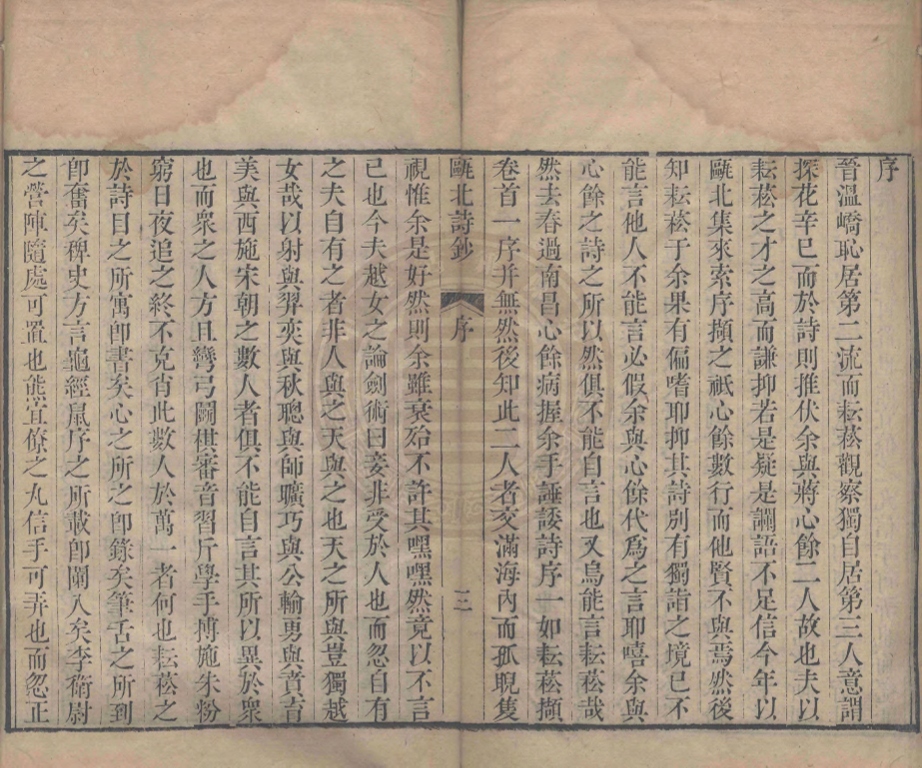 序
晉溫嶠恥居第二流而耘菘觀察獨自居第三人意謂
探花辛巳而於詩則推伏余與蔣心餘二人故也夫以
耘菘之才之高而謙抑若是疑是讕語不足信今年以
甌北集來索序擷之祇心餘數行而他賢不與焉然後
知耘菘于余果有偏嗜耶抑其詩別有獨詣之境已不
能言他人不能言必假余與心餘代爲之言耶嘻余與
心餘之詩之所以然俱不能自言也又烏能言耘菘哉
然去春過南昌心餘病握余手諈諉詩序一如耘菘擷
卷首一序并無然後知此二人者交滿海內而孤睨隻
甌北詩鈔
序
三
視惟余是好然則余雖衰殆不許其嘿嘿然竟以不言
已也今夫越女之論劍術曰妾非受於人也而忽自有
之夫自有之者非人與之天與之也天之所與豈獨越
女哉以射與羿奕與秋聰與師曠巧與公輸勇與賁育
美與西施宋朝之數人者俱不能自言其所以異於衆
也而衆之人方且彎弓鬭棋審音習斤學手搏施朱粉
窮日夜追之終不克肖此數人於萬一者何也耘菘之
於詩目之所寓卽書矣心之所之卽錄矣筆舌之所到
卽奮矣稗史方言龜經鼠序之所載卽闌入矣李衛尉
之營陣隨處可置也熊宜僚之丸信手可弄也而忽正